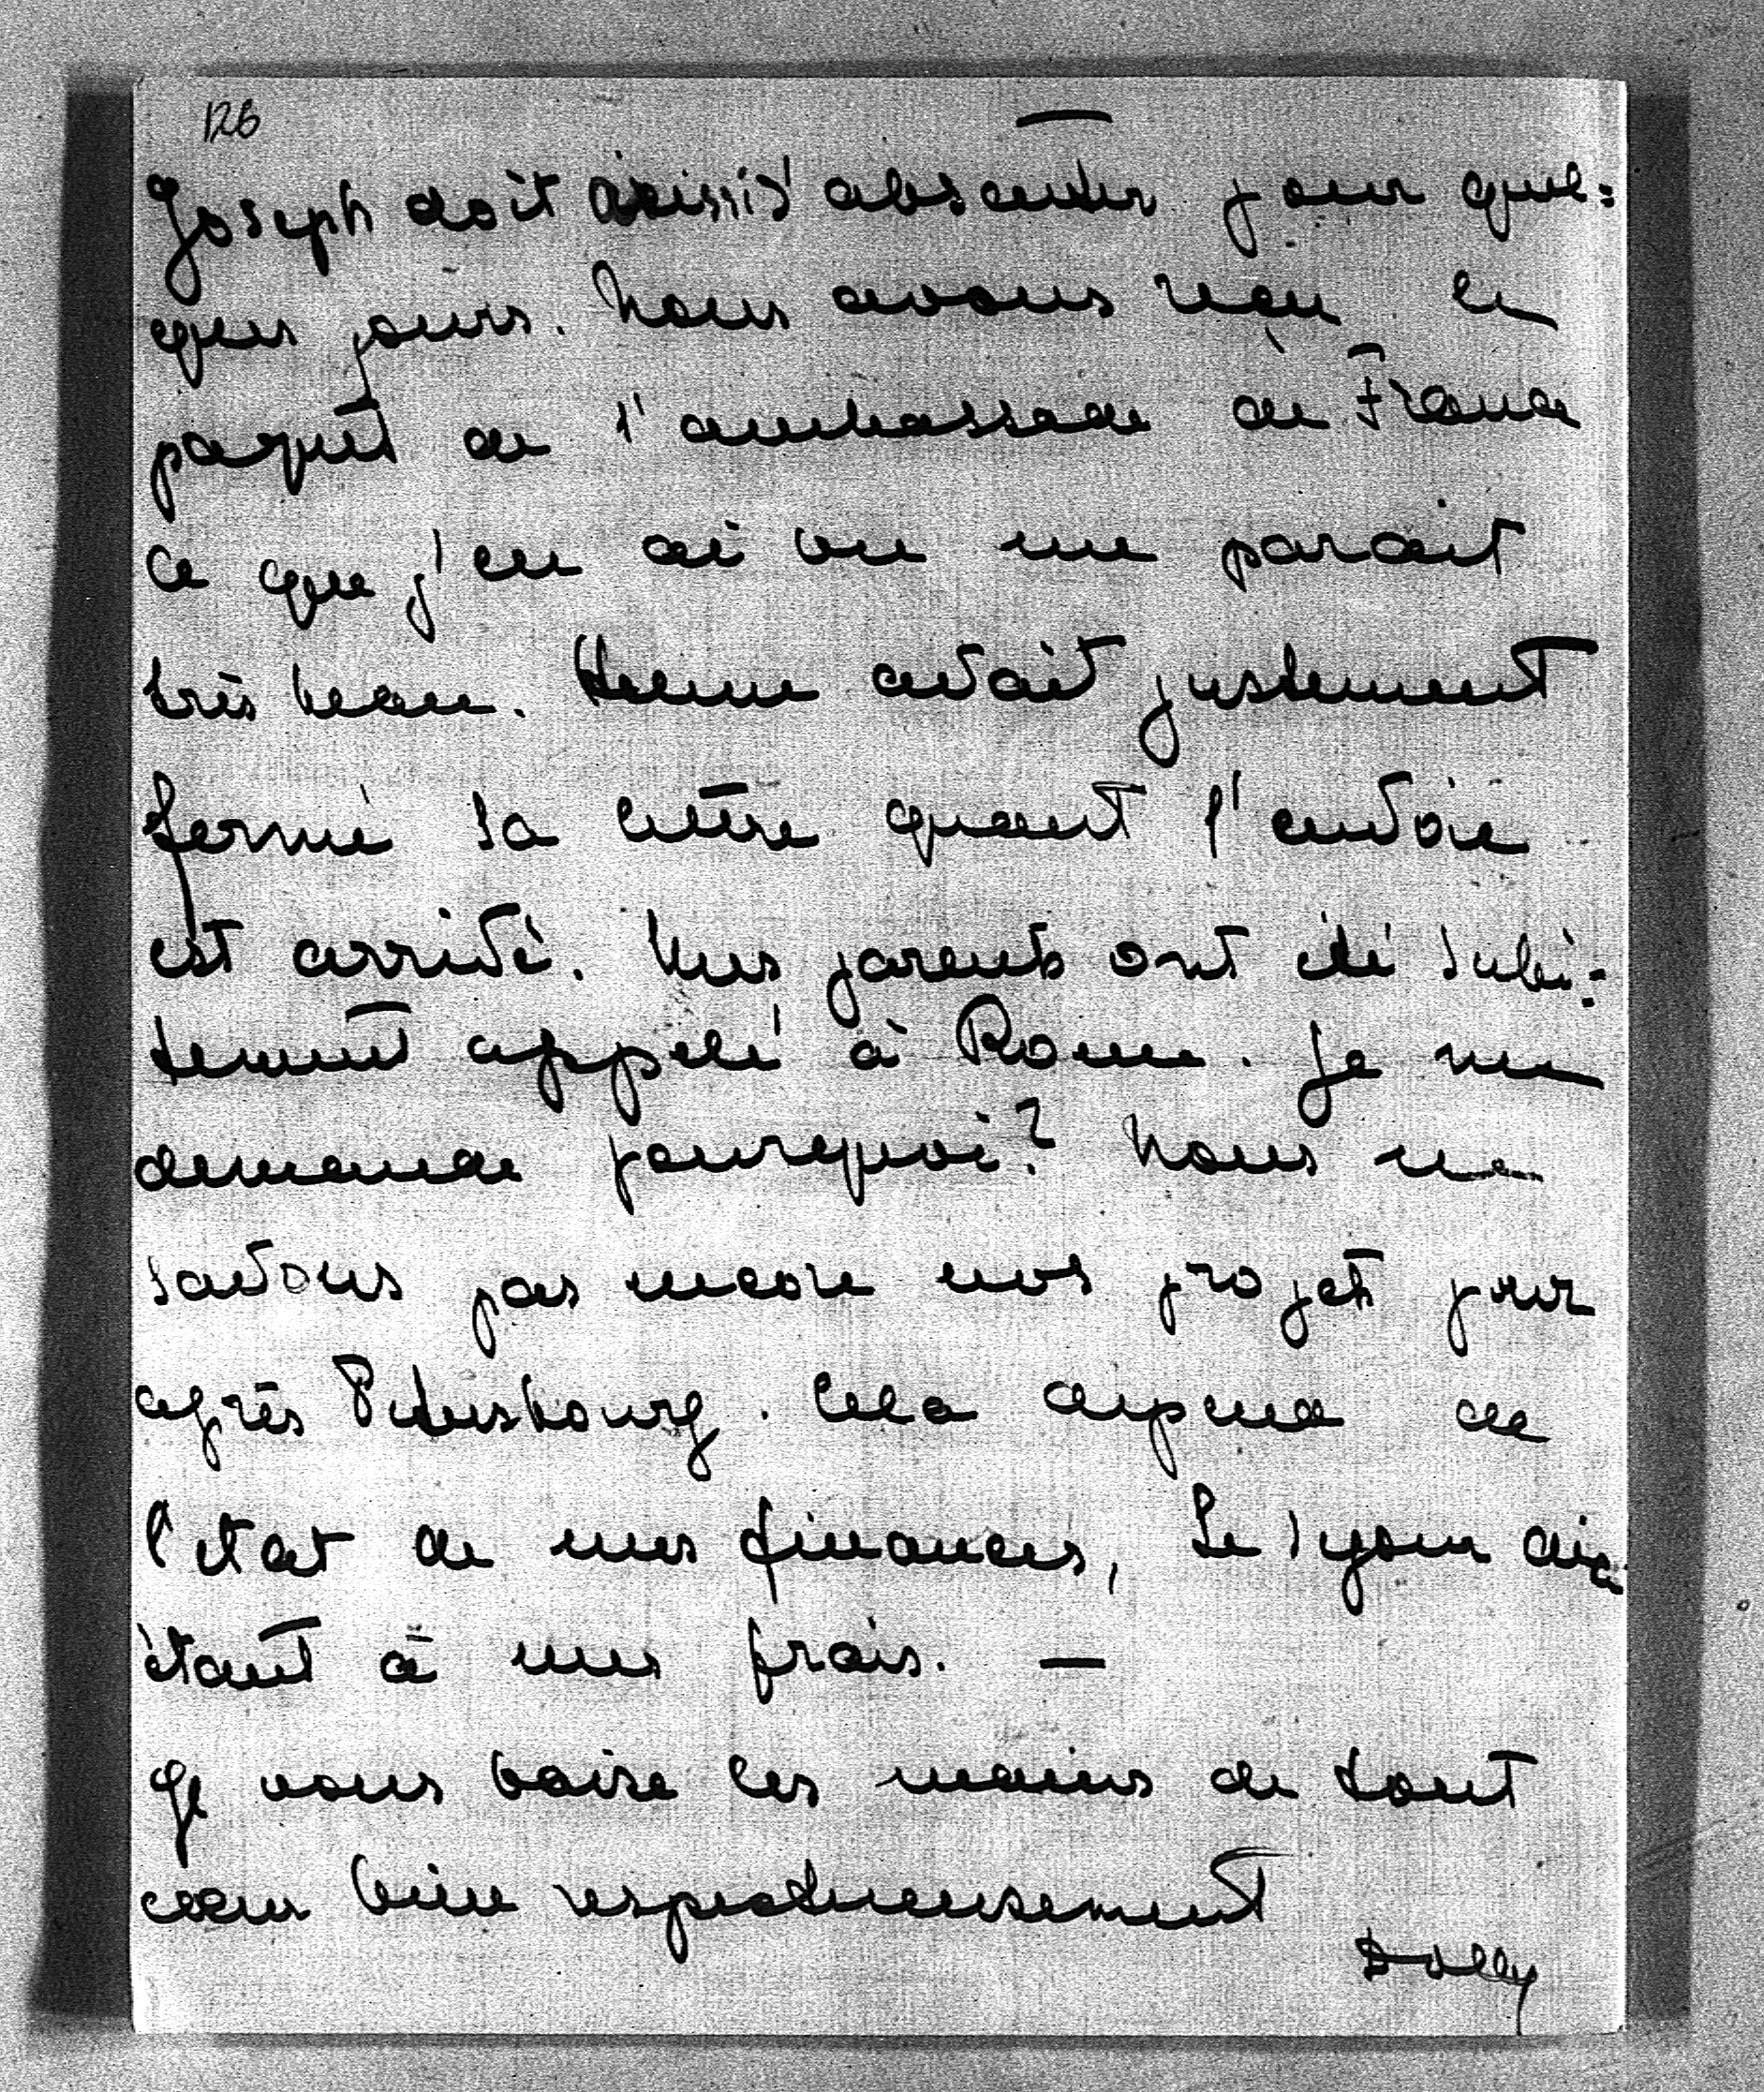 126
Joseph doit aussi s'absenter pour quel:
ques jours. Nous avons reçu le
paquet de l'ambassade de France
ce que j'en ai vu me parait
très beau. avait justement
fermé sa lettre quant l'envoie
est arrivé. Mes parents ont été subi:
tement appelé à Rome. Je me
demande pourquoi? Nous ne
savons pas encore nos projets pour
après Petersbourg. Cela depend de
l'etat de mes finances, le sejour
étant à mes frais. —
Je vous baise les mains de tout
coeur bien respectueusement
Dolly